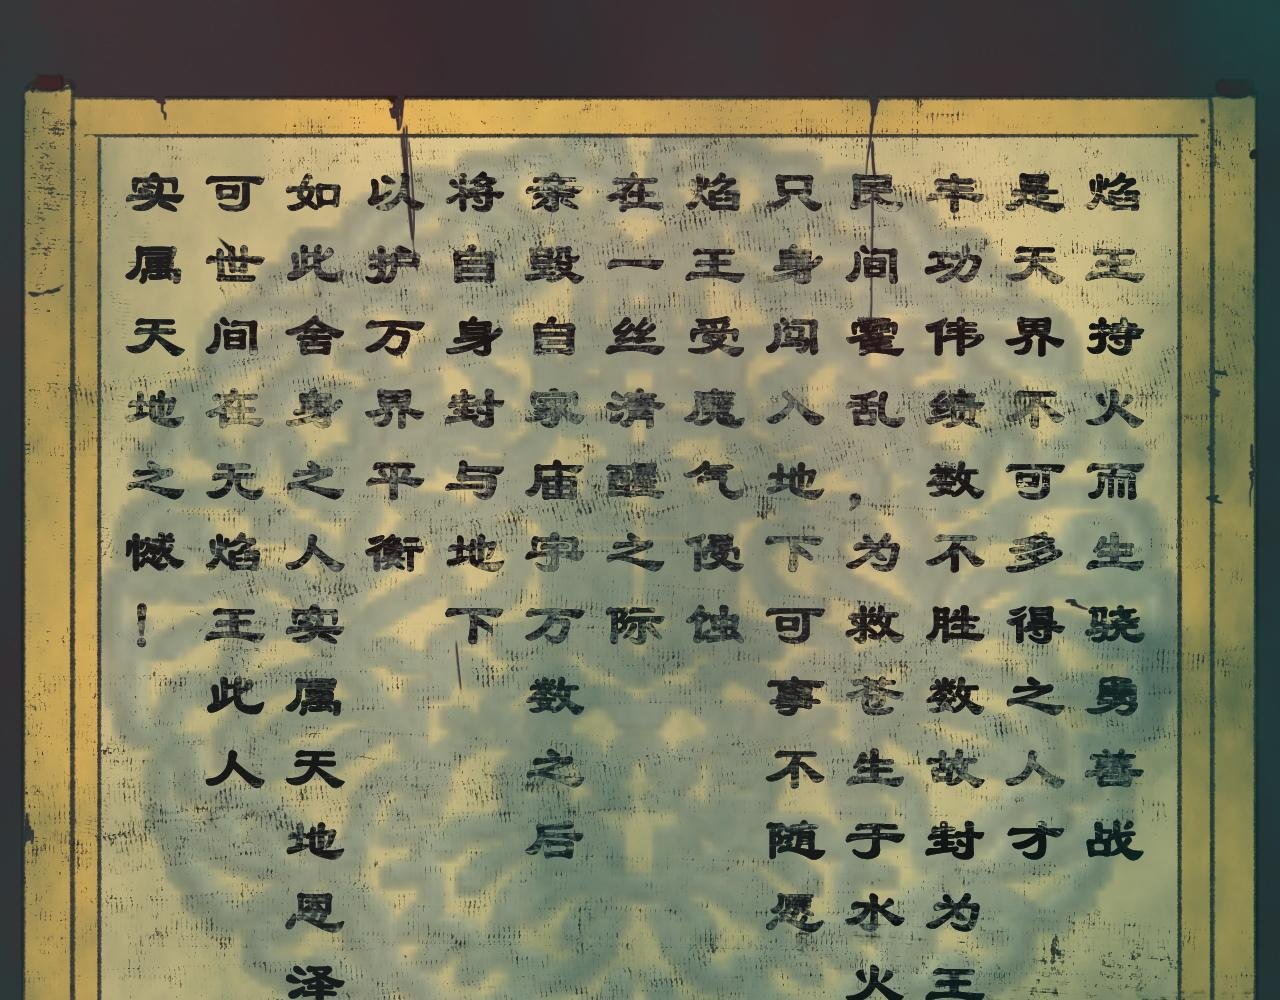 焰王持火而生骁勇善战
是天界不可多得之人才
丰功伟绩数不胜数故封为王
民间霍乱，为救苍生于水火
只身闯入地下可事不随愿
焰王受魔气侵蚀
在一丝清醒之际
亲毁自家庙宇万数之后
将自身封与地下
以护万界平衡
如此舍身之人实属天地恩泽
可世间在无焰王此人
实属天地之憾！